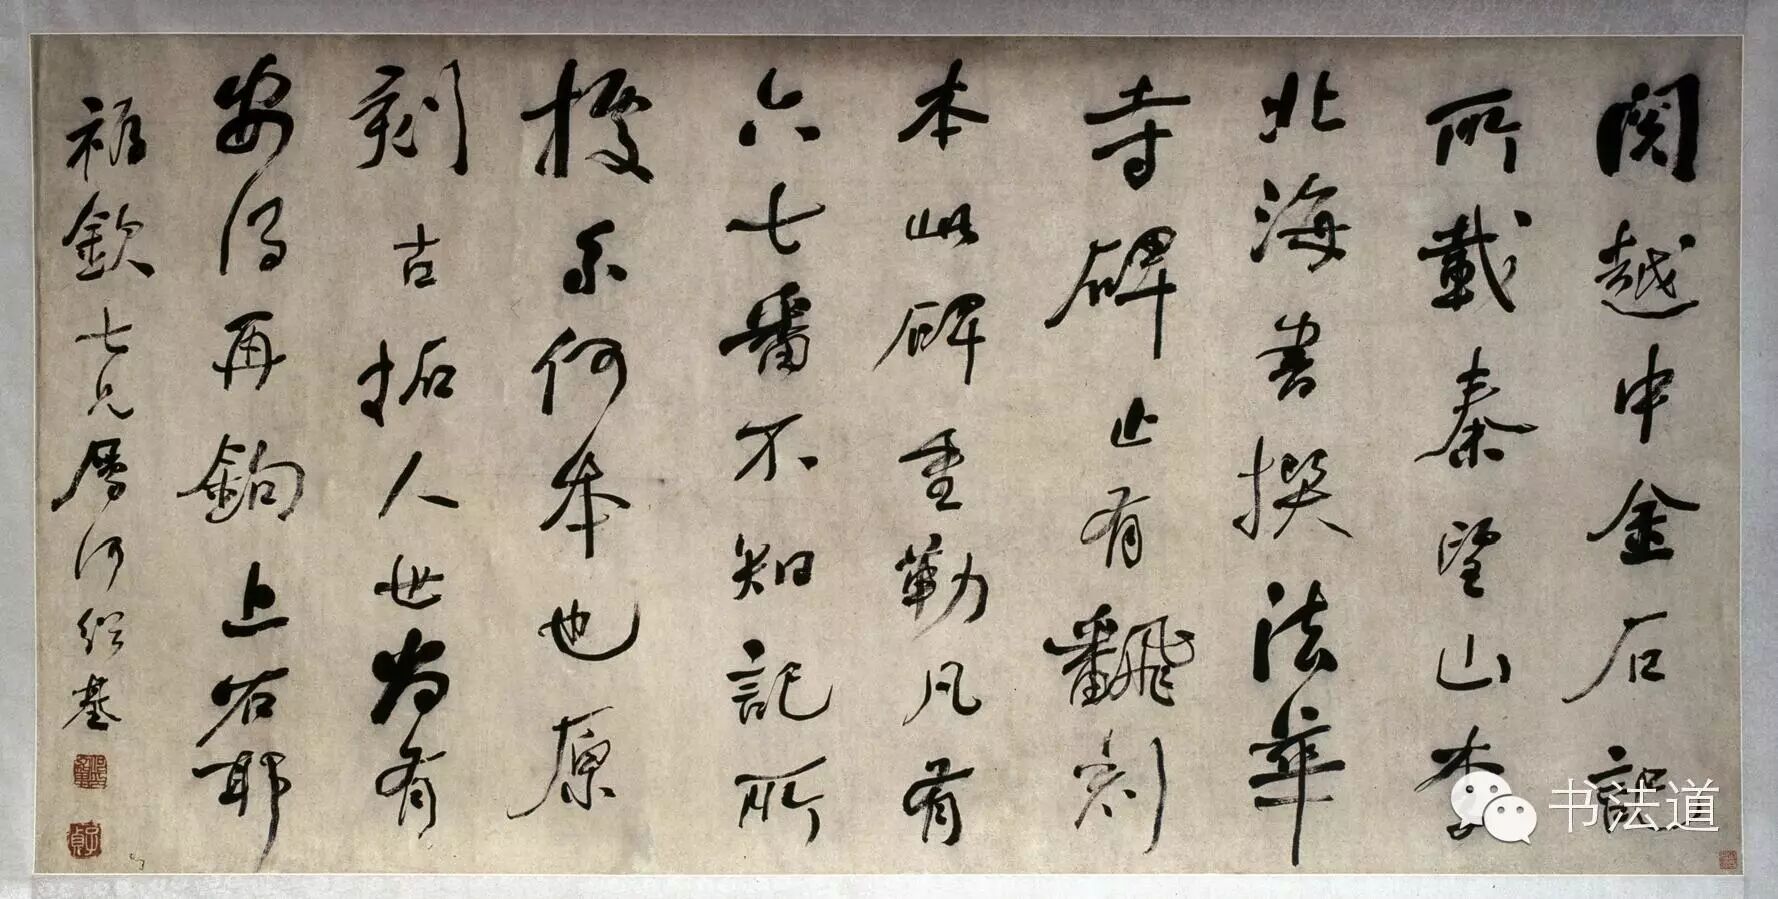 阅越中金石記
所載秦望山李
北海書撰法華
寺碑止有翻刻
本此碑重勒凡有
六七番不知記所
據系何本也原
刻古拓人世尚有
安得再鉤上石耶
禥欽七兄属何紹基
子貞
书法道